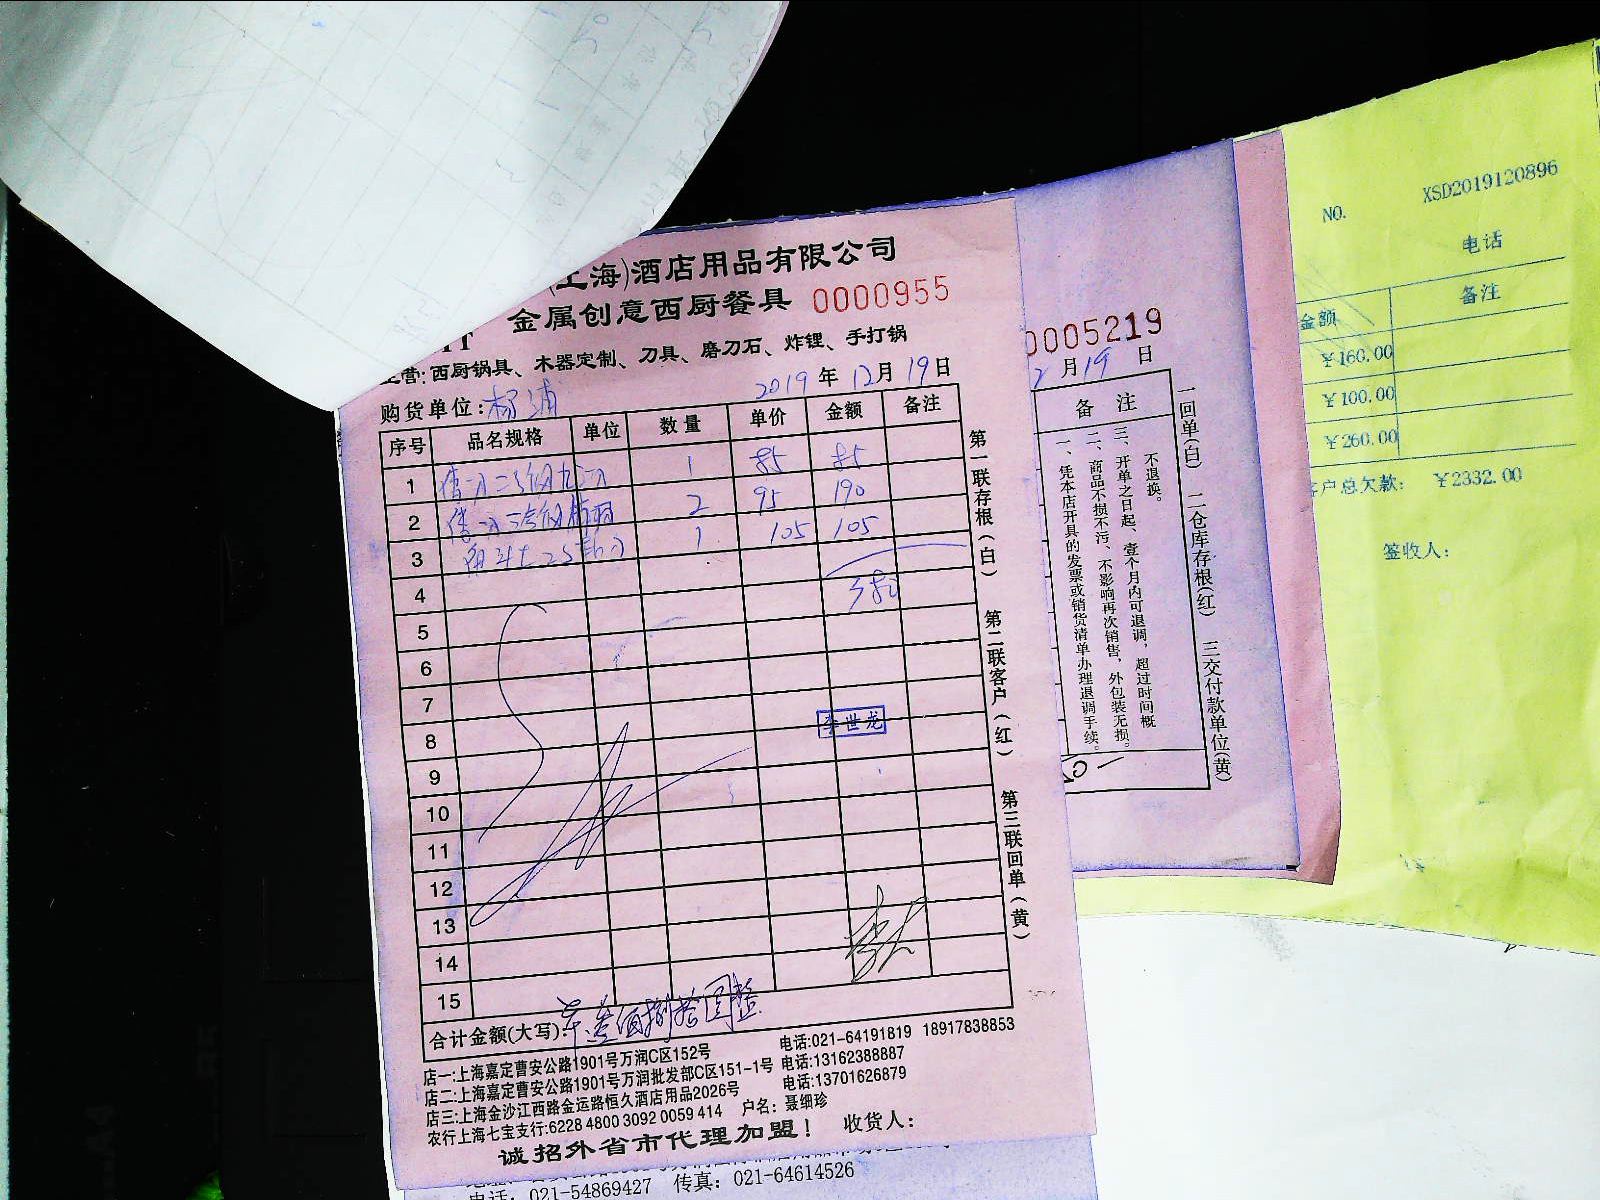 (上海)酒店用品有限公司
金属创意西厨餐具 0000955
主营:西厨锅具、木器定制、刀具、磨刀石、炸锂、手打锅
购货单位:杨浦 2019年12月19日
序号 品名规格 单位 数量 单价 金额 备注
1 1 85 85
2 2 95 190
3 1 105 105
4 380
5
6
7
8 李世龙
9
10
11
12
13
14
15
合计金额(大写): 叁佰捌拾圆整
店一:上海嘉定曹安公路1901号万润C区152号 电话:021-64191819 18917838853
店二:上海嘉定曹安公路1901号万润批发部C区151-1号 电话:13162388887
店三:上海金沙江西路金运路恒久酒店用品2026号 电话:13701626879
农行上海七宝支行:6228 4800 3092 0059 414 户名: 聂细珍
诚招外省市代理加盟! 收货人:
第一联存根(白) 第二联客户(红) 第三联回单(黄)
电话: 021-54869427 传真: 021-64614526
0005219
2月19日
备注
一、凭本店开具的发票或销货清单办理退调手续。
二、商品不损不污、不影响再次销售,外包装无损。
三、开单之日起、壹个月内可退调,超过时间概
不退换。
一回单(白) 二仓库存根(红) 三交付款单位(黄)
NO. XSD2019120896
电话
金额 备注
¥160.00
¥100.00
¥260.00
客户总欠款: ¥2332.00
签收人: